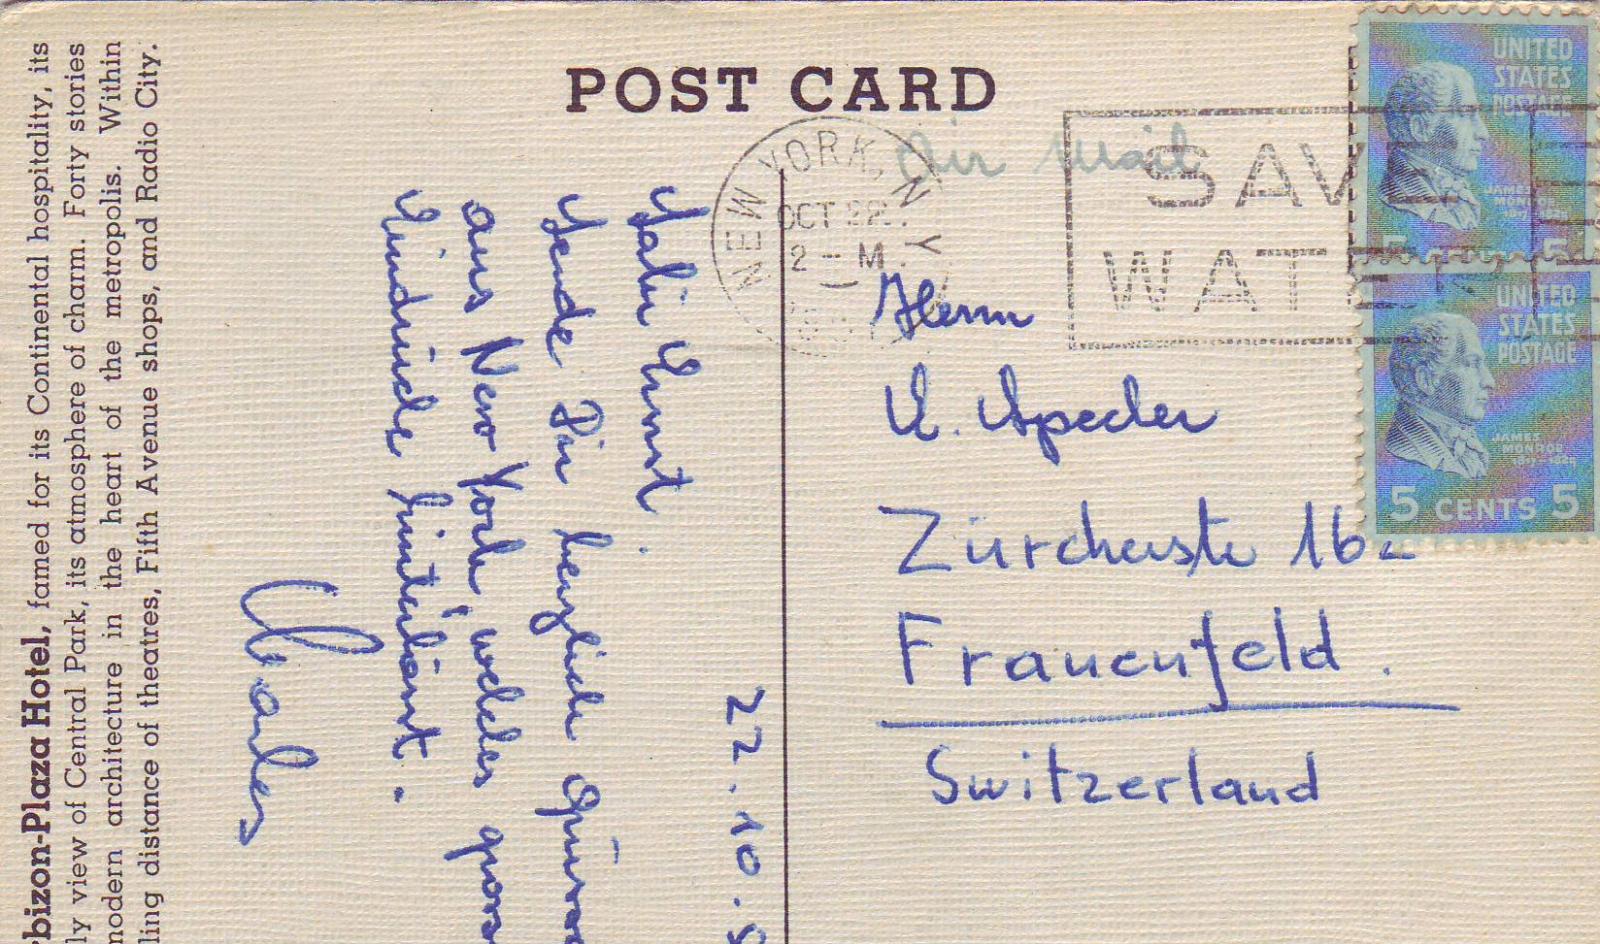 POST CARD
Air Mail
NEW YORK, N.Y.
OCT 22
2 - M
SAVE
WAT
UNITED
STATES
POSTAGE
JAMES
MONROE
5 5
UNITED
STATES
POSTAGE
JAMES
MONROE
5 CENTS 5
Herrn
Zürcherstr 162
Frauenfeld.
Switzerland
22.10.5
Salü Ernst.
Sende Dir herzlich
aus New York, welches
Eindrücke hinterlässt.
Charles
rbizon-Plaza Hotel, famed for its Continental hospitality, its
ly view of Central Park, its atmosphere of charm. Forty stories
modern architecture in the heart of the metropolis. Within
ling distance of theatres, Fifth Avenue shops, and Radio City.